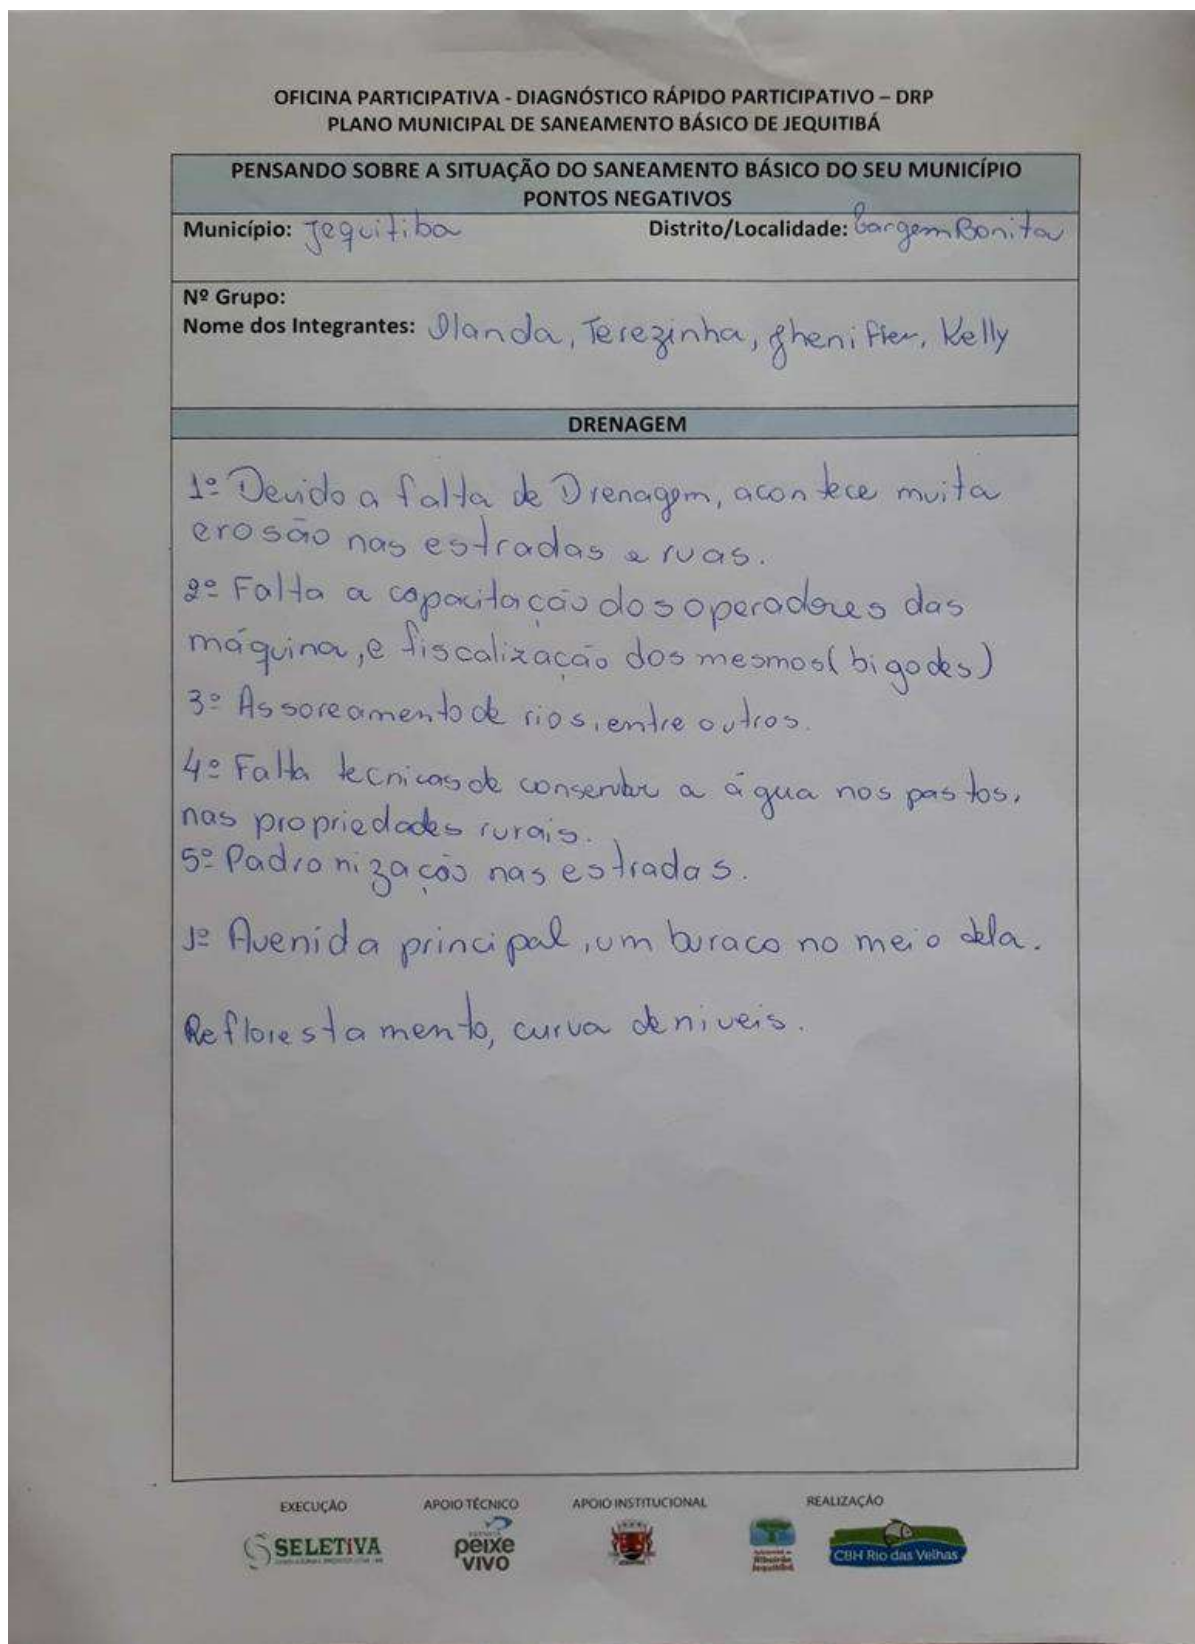 OFICINA PARTICIPATIVA - DIAGNÓSTICO RÁPIDO PARTICIPATIVO – DRP
PLANO MUNICIPAL DE SANEAMENTO BÁSICO DE JEQUITIBÁ
PENSANDO SOBRE A SITUAÇÃO DO SANEAMENTO BÁSICO DO SEU MUNICÍPIO
PONTOS NEGATIVOS
Município: Jequitiba Distrito/Localidade: Vargem Bonita
Nº Grupo:
Nome dos Integrantes: Ilanda, Terezinha, Jheniffer, Kelly
DRENAGEM
1º Devido a falta de Drenagem, acontece muita
erosão nas estradas e ruas.
2º Falta a capacitação dos operadores das
máquina, e fiscalização dos mesmos (bigodes)
3º Assoreamento de rios, entre outros.
4º Falta tecnicas de conservar a água nos pastos,
nas propriedades rurais.
5º Padronização nas estradas.
1º Avenida principal, um buraco no meio dela.
Reflorestamento, curva de niveis.
EXECUÇÃO APOIO TÉCNICO APOIO INSTITUCIONAL REALIZAÇÃO
SELETIVA
peixe
vivo
Ribeirão
Jequitibá
CBH Rio das Velhas